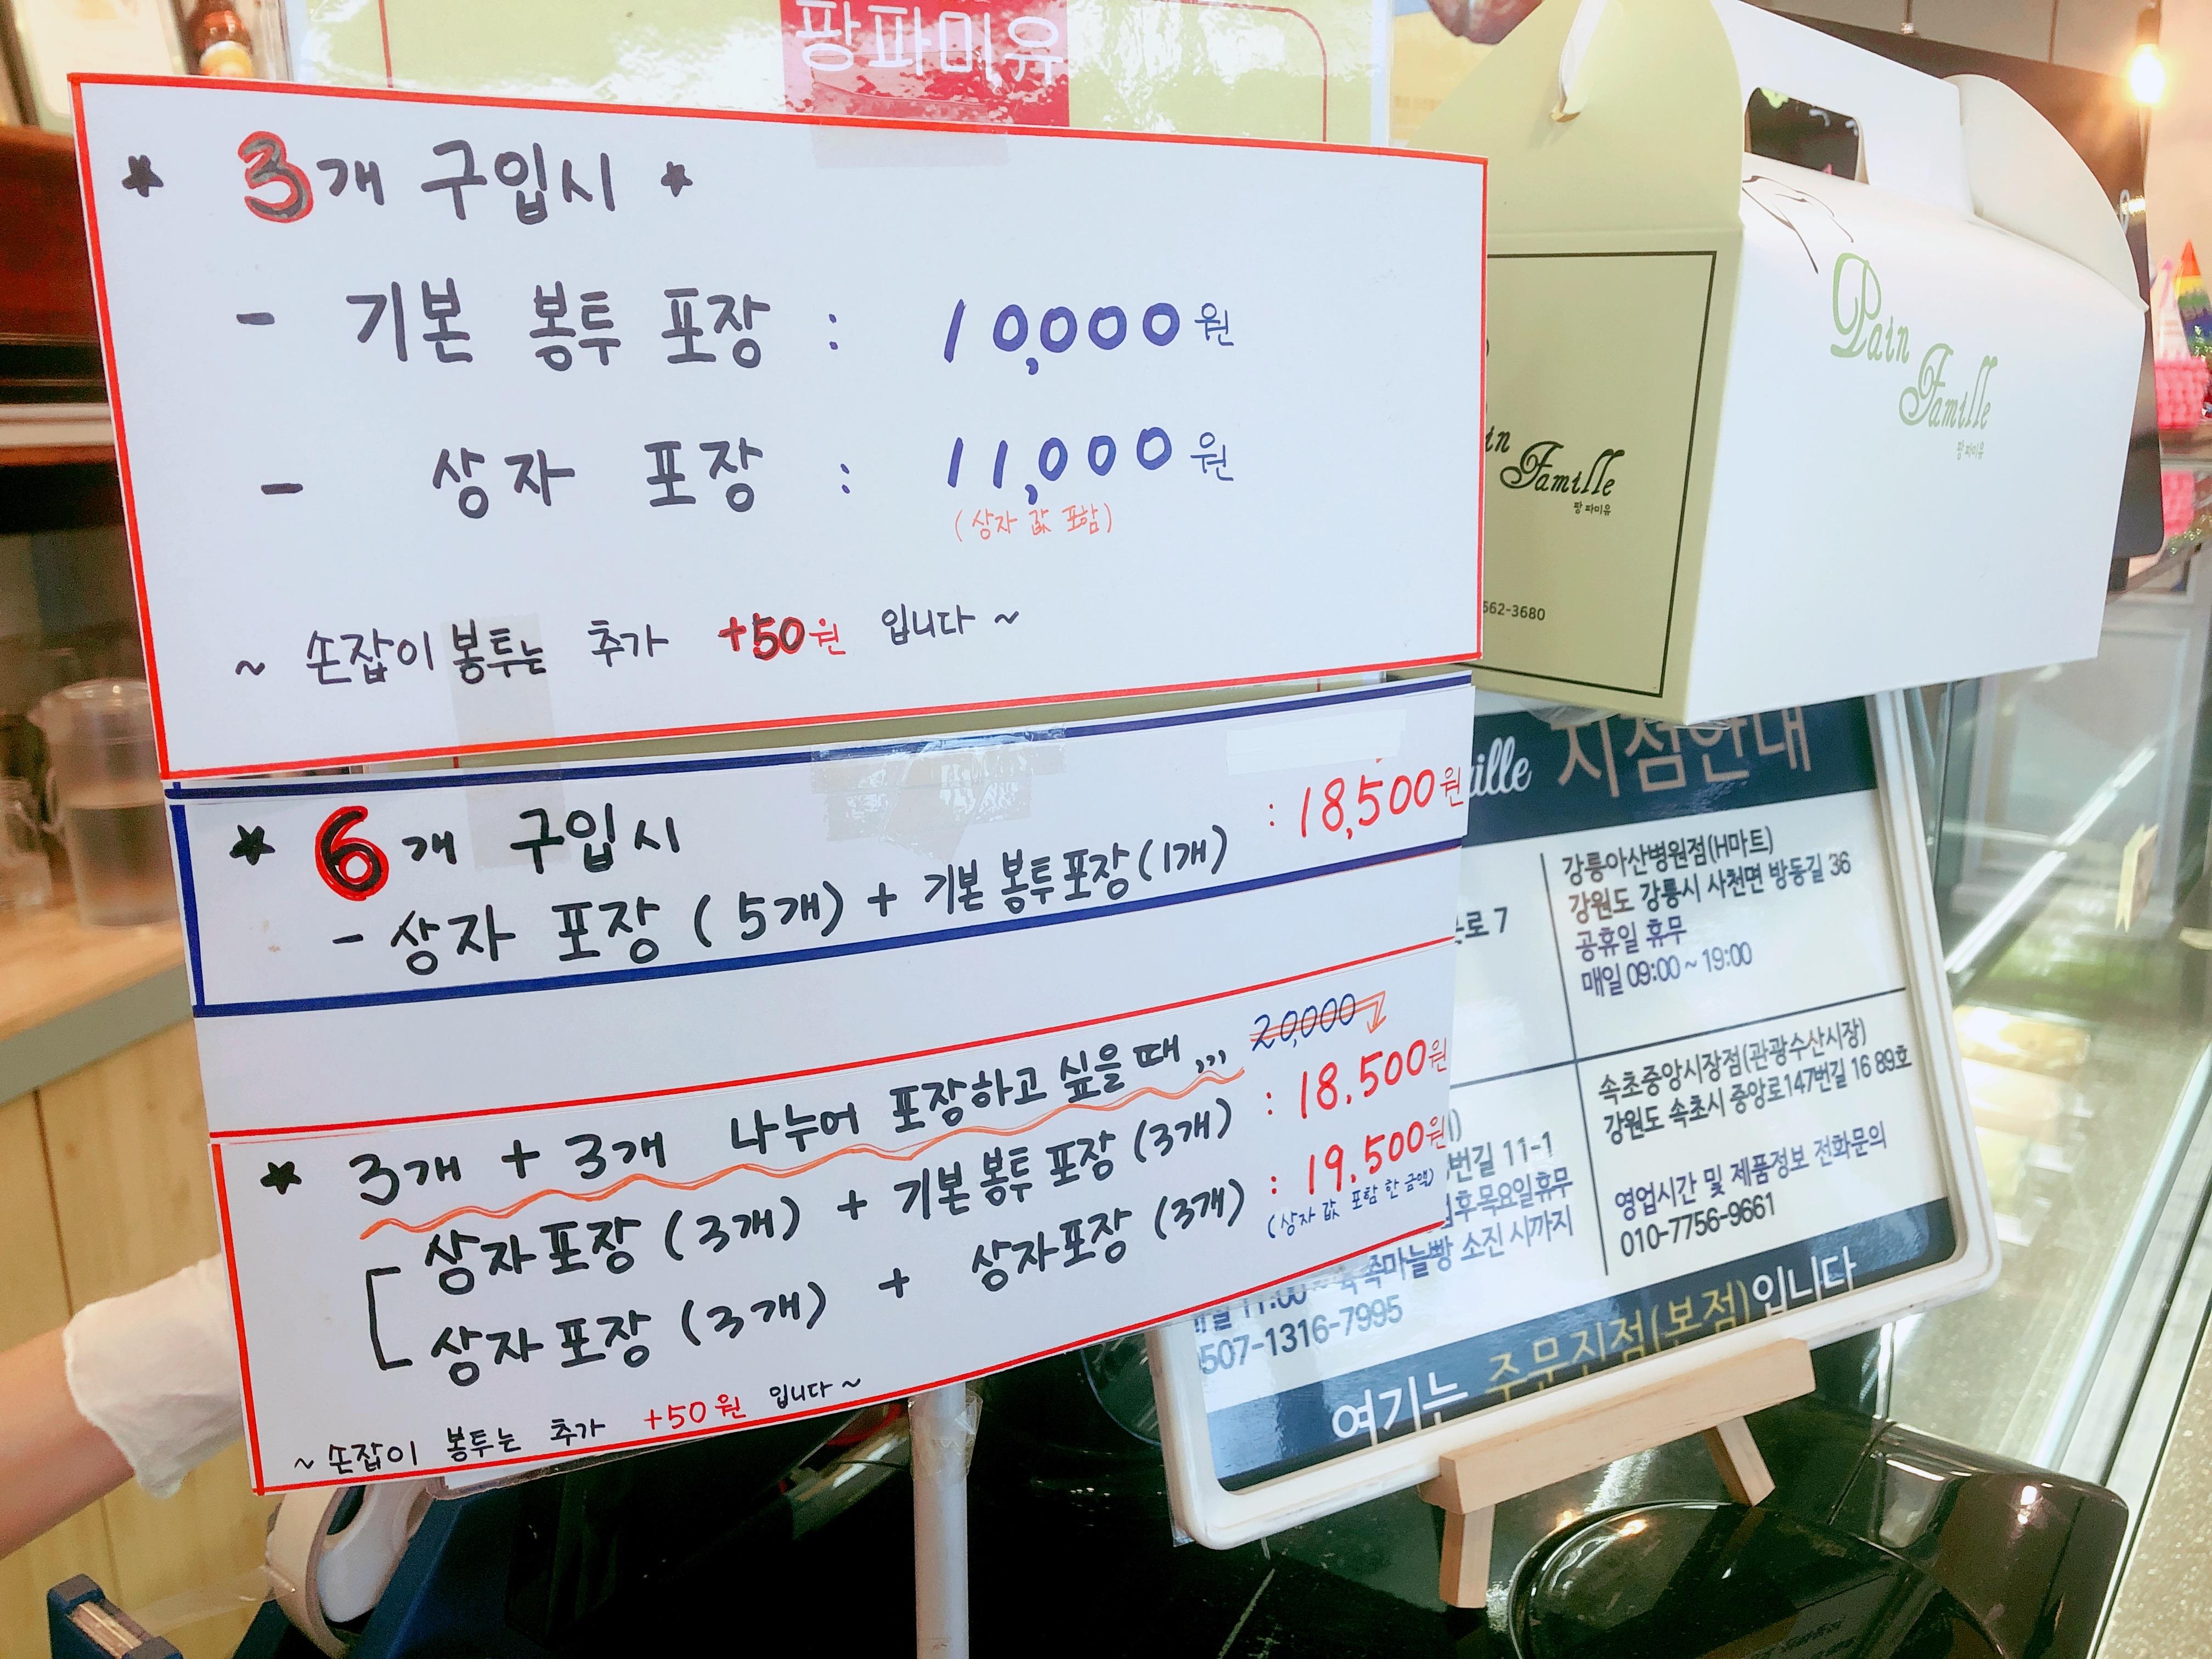 팡파미유
★ 3개 구입시 ★
- 기본 봉투 포장 : 10,000원
- 상자 포장 : 11,000원
(상자 값 포함)
~ 손잡이 봉투는 추가 +50원 입니다 ~
★ 6개 구입시
- 상자 포장 (5개) + 기본 봉투 포장 (1개) : 18,500원
★ 3개 + 3개 나누어 포장하고 싶을 때,,, 20,000
상자 포장 (3개) + 기본 봉투 포장 (3개) : 18.500원
상자 포장 (3개) + 상자포장 (3개) : 19.500원
(상자 값 포함 한 금액)
~ 손잡이 봉투는 추가 +50원 입니다~
Pain
Famille
팡 파미유
in
Famille
팡 파미유
562-3680
ille 지점안내
로 7
강릉아산병원점(H마트)
강원도 강릉시 사천면 방동길 36
공휴일 휴무
매일 09:00 ~ 19:00
번길 11-1
후목요일휴무
11:00 ~ 육쪽마늘빵 소진 시까지
507-1316-7995
속초중앙시장점(관광수산시장)
강원도 속초시 중앙로147번길 16 89호
영업시간 및 제품정보 전화문의
010-7756-9661
여기는 주문진점(본점)입니다